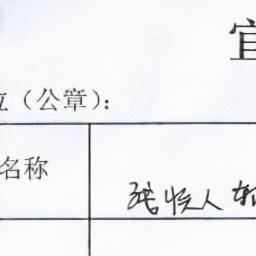 宜
位（公章）：
名称
残疾人